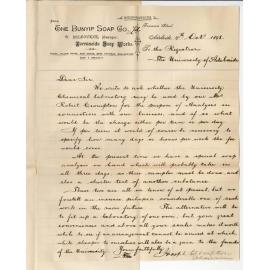 THE BUNYIP SOAP CO.
Burnside Soap Works.
Adelaide 4th Octr 1898.
To the Registrar
The University of Adelaide
Dear Sir
We write to ask whether the University
Chemical Laboratory may be used by our Mr
Robert Crompton for the purpose of Analyses in
connection with our business, and if so what
would be the charge either per term or per use
If per term it would of course be necessary to
specify how many days or hours per week the fee
would cover.
At the present time we have a special soap
analysis on hand which will probably take us
all three days as three samples must be done, and
also a shorter test of another substance.
These two are all we know of at present, but we
foretell an increase perhaps considerable one of such
work in the near future. The alternative will be
to fit up a laboratory of our own, but your great
convenience and above all your scales make it worth
while to see if an arrangement cannot be arrived at which
while cheaper to ourselves will also be a gain to the funds
of the University.
Yours faithfully
Joseph Crompton